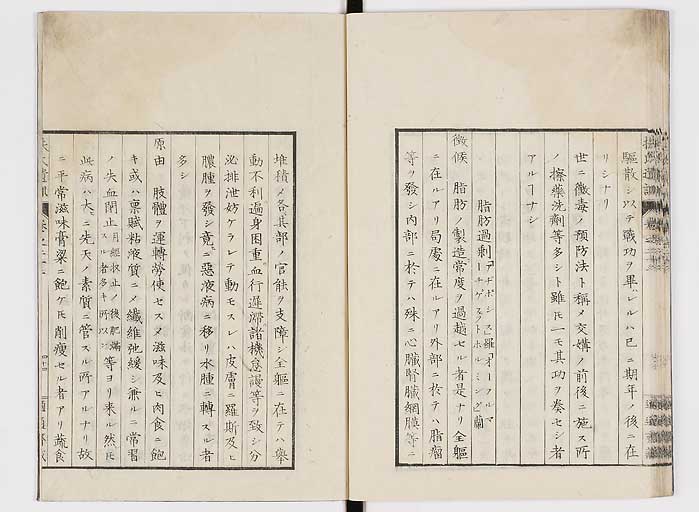 驅散シ以テ職功ヲ畢ヒシハ已ニ期年ノ後ニ在
リシナリ
世ニ黴毒ノ預防法ト稱メ交媾ノ前後ニ施ス所
ノ擦藥洗劑等多シト雖モ一モ其功ヲ奏セシ者
アルヿナシ
脂肪過剩
徴候 脂肪ノ製造常度ヲ過越セル者是ナリ全軀
ニ在ルアリ局處ニ在ルアリ外部ニ於テハ脂瘤
等ヲ發シ内部ニ於テハ殊ニ心臟腎臟網膜等ニ
堆積メ各其部ノ官能ヲ支障シ全軀ニ在テハ擧
動不利遍身困重血行遲滯諸機怠謾等ヲ致シ分
泌排泄妨ケラレテ動モスレハ皮膚ニ羅斯及ヒ
膿腫ヲ發シ竟ニ惡液病ニ移リ水腫ニ轉スル者
多シ
原由 肢體ヲ運轉勞使セスメ滋味及ヒ肉食ニ飽
キ或ハ稟賦粘液質ニメ纖維弛緩シ無ルニ常習
ノ失血閉止月經收止ノ後肥滿スル者多キ所以ン等ヨリ來ル然モ
此病ハ大ニ先天ノ素質ニ管スル所アルナリ故
ニ平常滋味膏粱ニ飽ケモ削瘦セル者アリ蔬食